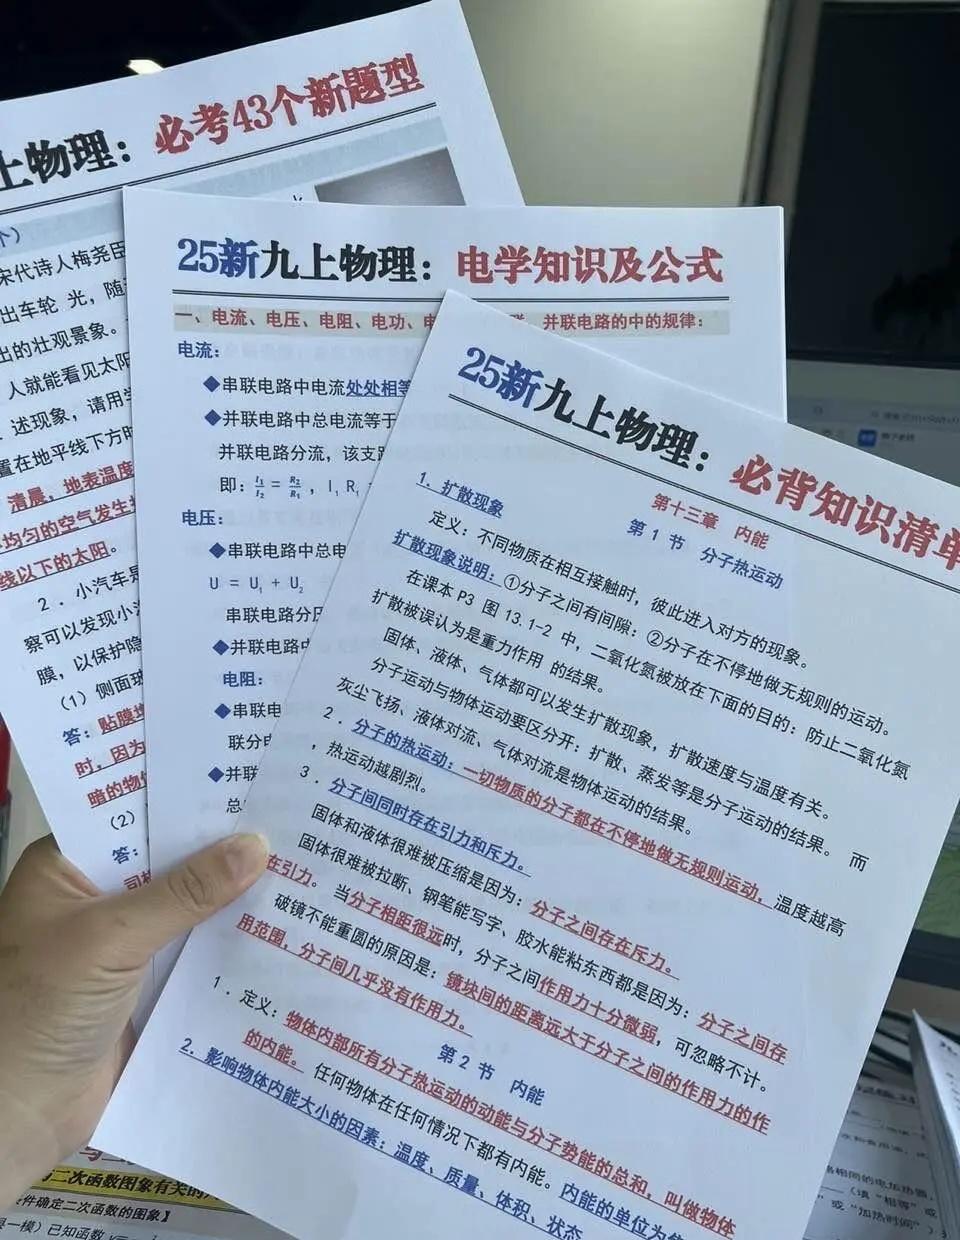 上物理：必考43个新题型
个）
宋代诗人梅尧臣
出车轮 光，随
出的壮观景象。
人就能看见太阳
述现象，请用
置在地平线下方时
清晨，地表温度
均匀的空气发生
线以下的太阳。
2．小汽车是
察可以发现小
膜，以保护隐
（1）侧面玻
答：贴膜
时，因为
暗的物
（2）
答：
司机
25新九上物理：电学知识及公式
一、电流、电压、电阻、电功、电 联、并联电路的中的规律：
电流：
◆串联电路中电流处处相等
◆并联电路中总电流等于
并联电路分流，该支路
即：I₁/I₂ = R₂/R₁，I₁R₁
电压：
◆串联电路中总电
U = U₁ + U₂
串联电路分压
◆并联电路中
电阻：
◆串联电
联分电
◆并联
总
25新九上物理：必背知识清单
第十三章 内能
第 1 节 分子热运动
1．扩散现象
定义：不同物质在相互接触时，彼此进入对方的现象。
扩散现象说明：①分子之间有间隙；②分子在不停地做无规则的运动。
在课本 P3 图 13.1-2 中，二氧化氮被放在下面的目的：防止二氧化氮
扩散被误认为是重力作用 的结果。
固体、液体、气体都可以发生扩散现象，扩散速度与温度有关。
分子运动与物体运动要区分开：扩散、蒸发等是分子运动的结果。而
灰尘飞扬、液体对流、气体对流是物体运动的结果。
2．分子的热运动：一切物质的分子都在不停地做无规则运动，温度越高
，热运动越剧烈。
3．分子间同时存在引力和斥力。
固体和液体很难被压缩是因为：分子之间存在斥力。
固体很难被拉断、钢笔能写字、胶水能粘东西都是因为：分子之间存
在引力。当分子相距很远时，分子之间作用力十分微弱，可忽略不计。
破镜不能重圆的原因是：镜块间的距离远大于分子之间的作用力的作
用范围，分子间几乎没有作用力。
第 2 节 内能
1．定义：物体内部所有分子热运动的动能与分子势能的总和，叫做物体
的内能。任何物体在任何情况下都有内能。内能的单位为
2．影响物体内能大小的因素：温度、质量、体积、状态
二次函数图象有关的
件确定二次函数的图象】
一模）已知函数
相同的电加热器，
（填“相等”或
“加热时间”）